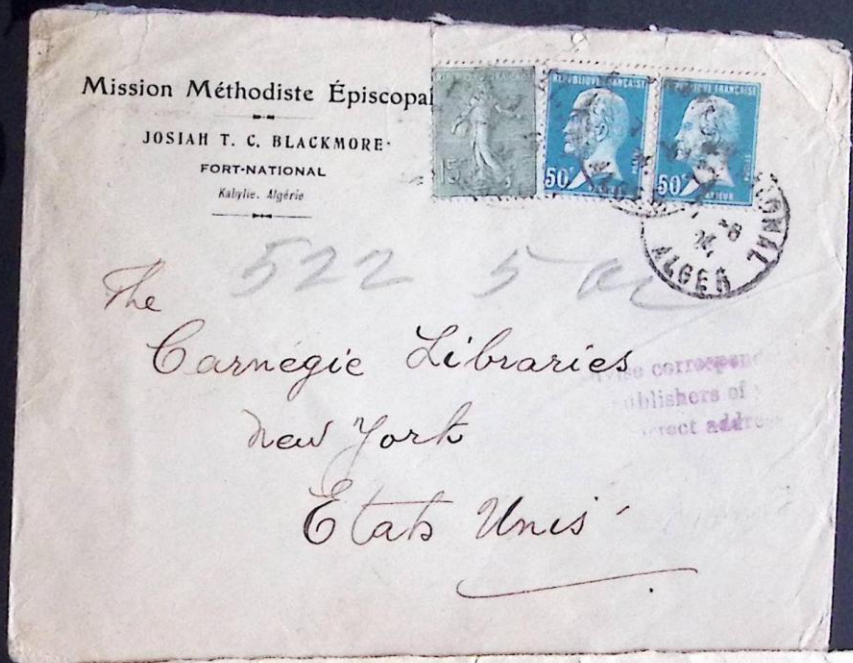 Mission Méthodiste Épiscopal
JOSIAH T. C. BLACKMORE
FORT-NATIONAL
Kabylie. Algérie
RÉPUBLIQUE FRANÇAISE
15
RÉPUBLIQUE FRANÇAISE
50c
POSTES
50c
ALGER
522 5 av
The
Carnegie Libraries
New York
Etats Unis
correspon
ublishers of
rect addre